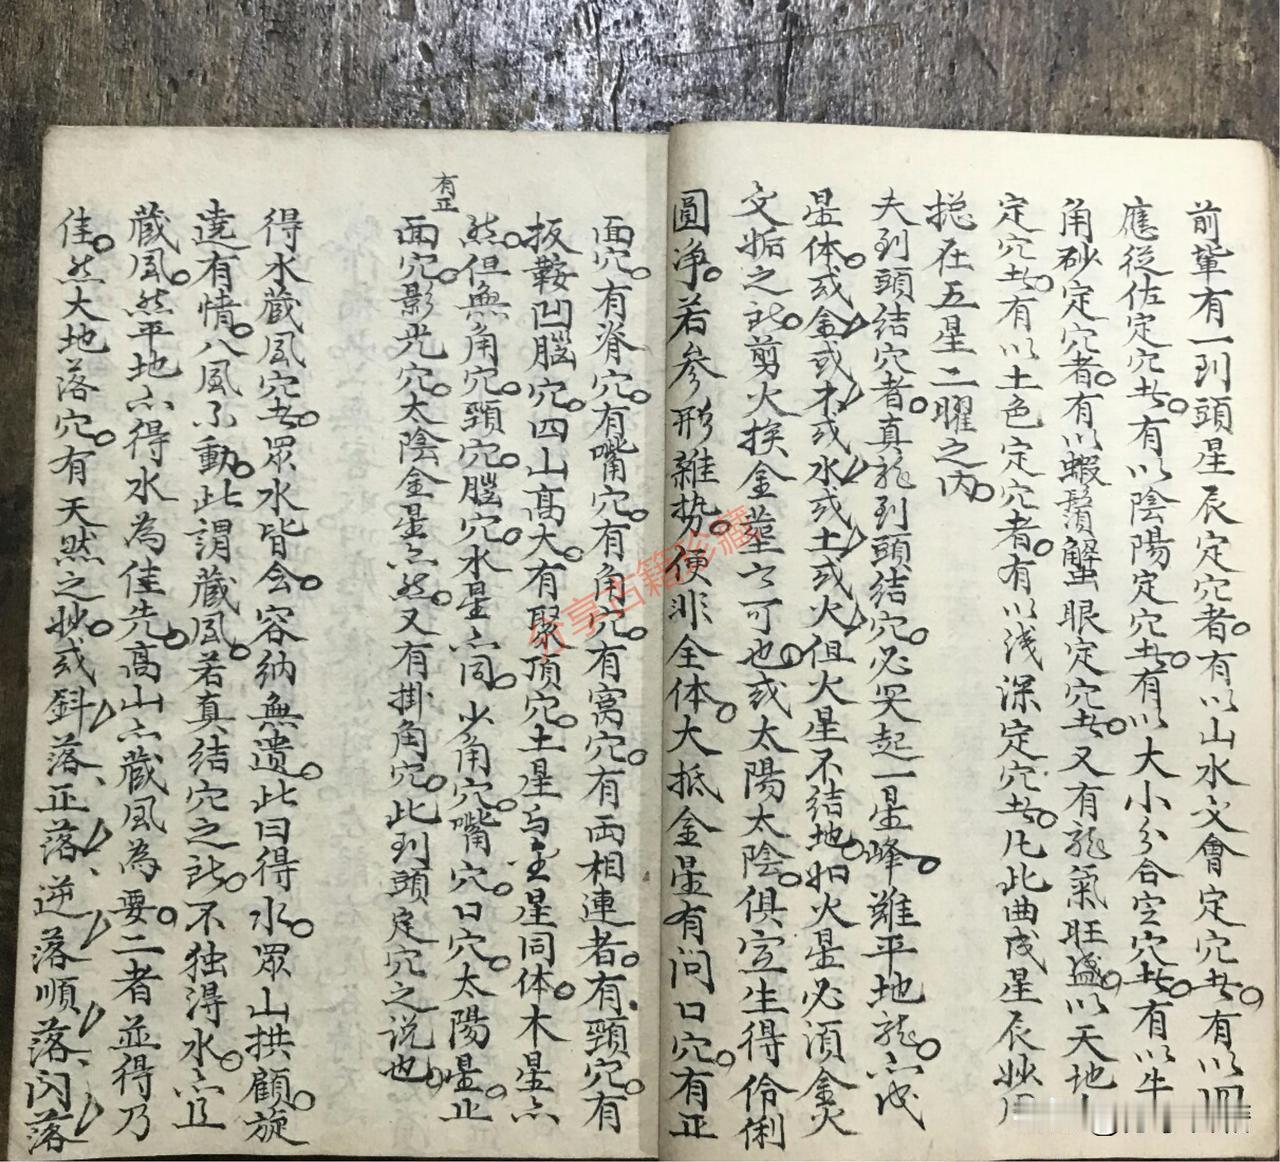 前輩有一到頭星辰定穴者。有以山水交會定穴者。有以四
應從佐定穴者。有以陰陽定穴者。有以大小分合定穴者。有以牛
角砂定穴者。有以蝦鬚蟹眼定穴者。又有龍氣旺盛。以天地人
定穴者。有以土色定穴者。有以浅深定穴者。凡此曲成星辰妙用
揔在五星二曜之内。
夫到頭結穴者。真龍到頭結穴。必突起一星峰。雖平地龍。亦成
星体。或金或木或水或土或火但火星不結地。如火星必須金火
交姤之所。剪火挨金塟之可也。或太陽太陰。俱宜生得伶俐
圓净。若参形雜势。便非全体。大抵金星有问口穴。有正
面穴。有脊穴。有嘴穴。有角穴。有窩穴。有两相連者。有頸穴。有
扳鞍凹腦穴。四山高大。有聚頂穴。土星与金星同体。木星亦
然。但無角穴。頸穴。腦穴。水星亦同。少角穴。嘴穴。口穴。太陽星。止
有正
面穴。影光穴。太陰金星亦然。又有掛角穴。此到頭定穴之说也。
得水蔵風穴者。眾水皆会。容纳無遗。此曰得水。眾山拱顧。旋
遶有情。八風不動。此謂蔵風。若真结穴之所。不独得水。亦且
蔵風。然平地亦得水為佳先。高山亦蔵風為要。二者並得乃
佳。然大地落穴。有天然之妙。或斜落、正落、逆落、順落、闪落
分享古籍珍藏